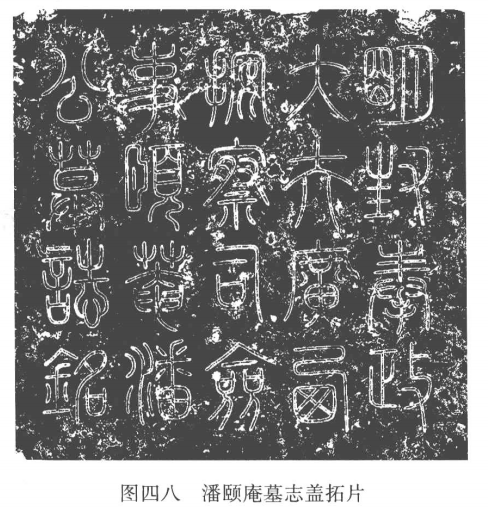 明封奉政
大夫廣西
按察司僉
事頤菴潘
公墓誌銘
图四八 潘颐庵墓志盖拓片